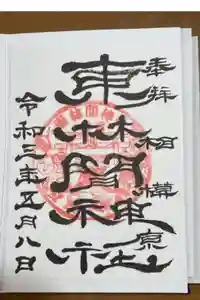 奉拝 相模原
東林間神社
令和三年五月八日